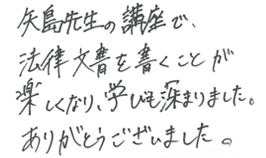 矢島先生の講座で、
法律文書を書くことが
楽しくなり、学びも深まりました。
ありがとうございました。